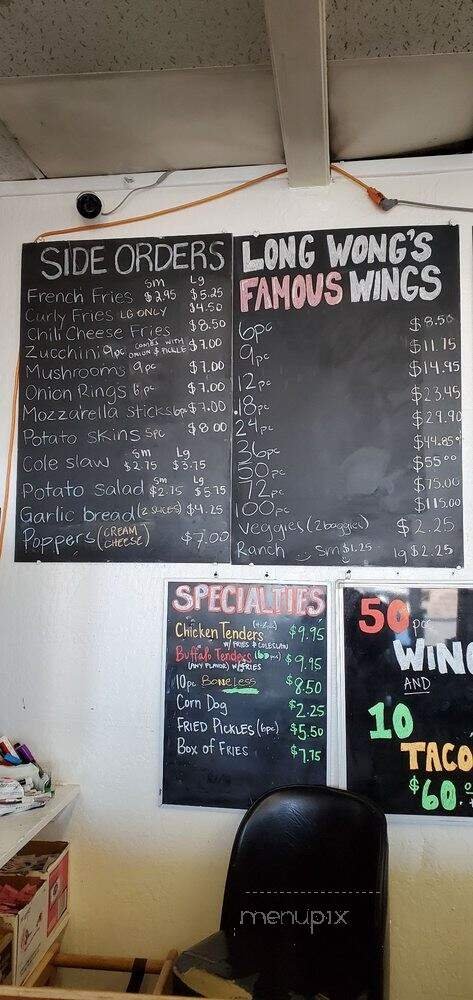 SIDE ORDERS
Sm Lg
French Fries $2.95 $5.25
Curly Fries LG ONLY $4.50
Chili Cheese Fries $8.50
Zucchini 9pc COMES WITH ONION & PICKLE $7.00
Mushrooms 9pc $7.00
Onion Rings 6pc $7.00
Mozzarella sticks 6pc $7.00
Potato skins 5pc $8.00
Sm Lg
Cole slaw $2.75 $3.75
Sm Lg
Potato salad $2.75 $5.75
Garlic bread (2 SLICES) $4.25
Poppers (CREAM CHEESE) $7.00
LONG WONG'S
FAMOUS WINGS
6pc $8.50
9pc $11.75
12pc $14.95
18pc $23.45
24pc $29.90
36pc $44.85
50pc $55.00
72pc $75.00
100pc $115.00
Veggies (2 baggies) $2.25
Ranch Sm $1.25 lg $2.25
SPECIALTIES
Chicken Tenders $9.95
W/ FRIES & COLESLAW
Buffalo Tenders $9.95
(ANY FLAVOR) W/FRIES
10pc BONELESS $8.50
Corn Dog $2.25
FRIED PICKLES (6pc) $5.50
BOX OF FRIES $7.75
50 pcs
WING
AND
10
TACO
$60.
menupix